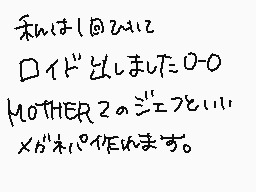 私は1回ひいて
ロイド出しました0-0
MOTHER2のジェフといい
メガネパ作れます。